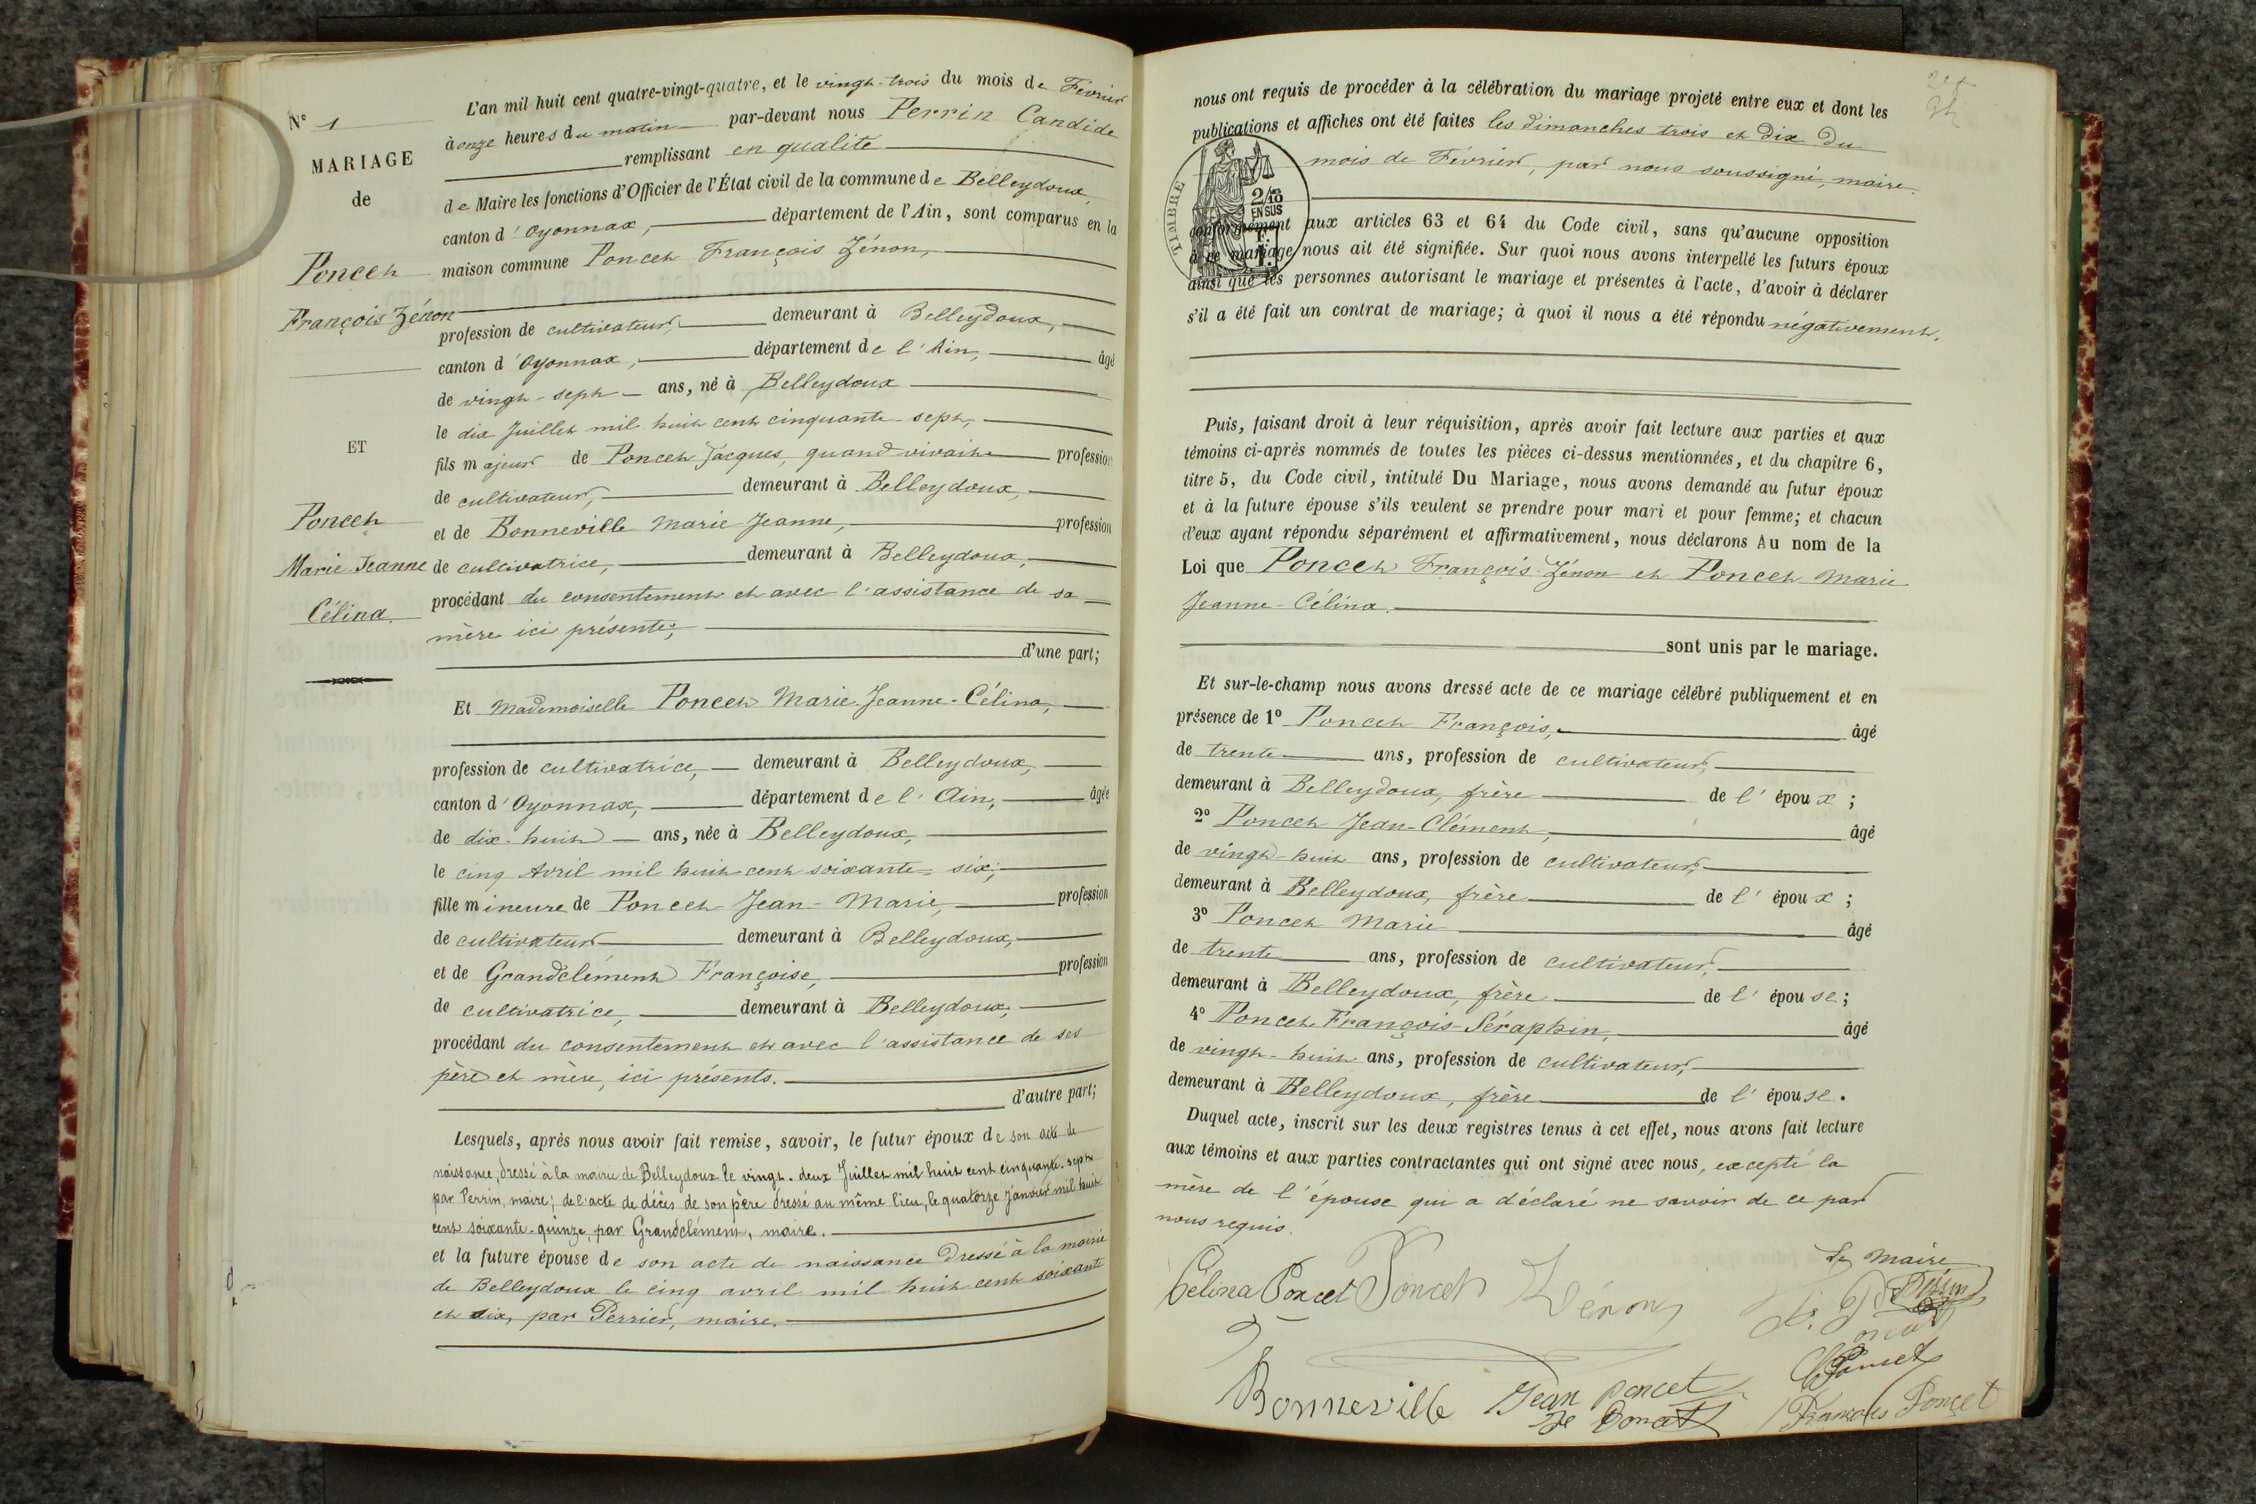 N° 1
MARIAGE
de
Poncet
François Zénon
ET
Poncet
Marie Jeanne
Célina.
L'an mil huit cent quatre-vingt-quatre, et le vingt-trois du mois de Février
à onze heures du matin par-devant nous Perrin Candide
remplissant en qualité
de Maire les fonctions d'Officier de l'État civil de la commune de Belleydoux,
canton d'Oyonnax, département de l'Ain, sont comparus en la
maison commune Poncet François Zénon,
profession de cultivateur, demeurant à Belleydoux,
canton d'Oyonnax, département de l'Ain, âgé
de vingt-sept ans, né à Belleydoux
le dix Juillet mil huit cent cinquante-sept,
fils majeur de Poncet Jacques, quand vivait profession
de cultivateur, demeurant à Belleydoux,
et de Bonneville Marie Jeanne, profession
de cultivatrice, demeurant à Belleydoux,
procédant du consentement et avec l'assistance de sa
mère ici présente;
d'une part;
Et Mademoiselle Poncet Marie-Jeanne-Célina,
profession de cultivatrice, demeurant à Belleydoux,
canton d'Oyonnax, département de l'Ain, âgée
de dix-huit ans, née à Belleydoux,
le cinq Avril mil huit cent soixante-six;
fille mineure de Poncet Jean-Marie, profession
de cultivateur demeurant à Belleydoux,
et de Grandclément Françoise, profession
de cultivatrice, demeurant à Belleydoux,
procédant du consentement et avec l'assistance de ses
père et mère, ici présents.
d'autre part;
Lesquels, après nous avoir fait remise, savoir, le futur époux de son acte de
naissance, dressé à la mairie de Belleydoux le vingt-deux Juillet mil huit cent cinquante-sept
par Perrin, maire; de l'acte de décès de son père dressé au même lieu, le quatorze Janvier mil huit
cent soixante-quinze, par Grandclément, maire.
et la future épouse de son acte de naissance dressé à la mairie
de Belleydoux le cinq avril mil huit cent soixante
et six, par Perrier, maire.
nous ont requis de procéder à la célébration du mariage projeté entre eux et dont les
publications et affiches ont été faites les dimanches trois et dix du
mois de Février, par nous soussigné, maire.
TIMBRE
2/10
EN SUS
conformément aux articles 63 et 64 du Code civil, sans qu'aucune opposition
à ce mariage nous ait été signifiée. Sur quoi nous avons interpellé les futurs époux
ainsi que les personnes autorisant le mariage et présentes à l'acte, d'avoir à déclarer
s'il a été fait un contrat de mariage; à quoi il nous a été répondu négativement.
Puis, faisant droit à leur réquisition, après avoir fait lecture aux parties et aux
témoins ci-après nommés de toutes les pièces ci-dessus mentionnées, et du chapitre 6,
titre 5, du Code civil, intitulé Du Mariage, nous avons demandé au futur époux
et à la future épouse s'ils veulent se prendre pour mari et pour femme; et chacun
d'eux ayant répondu séparément et affirmativement, nous déclarons Au nom de la
Loi que Poncet François-Zénon et Poncet Marie
Jeanne-Célina.
sont unis par le mariage.
Et sur-le-champ nous avons dressé acte de ce mariage célébré publiquement et en
présence de 1° Poncet François, âgé
de trente ans, profession de cultivateur,
demeurant à Belleydoux, frère de l'époux;
2° Poncet Jean-Clément, âgé
de vingt-huit ans, profession de cultivateur,
demeurant à Belleydoux, frère de l'époux;
3° Poncet Marie âgé
de trente ans, profession de cultivateur,
demeurant à Belleydoux, frère de l'épouse;
4° Poncet François-Séraphin, âgé
de vingt-huit ans, profession de cultivateur,
demeurant à Belleydoux, frère de l'épouse.
Duquel acte, inscrit sur les deux registres tenus à cet effet, nous avons fait lecture
aux témoins et aux parties contractantes qui ont signé avec nous, excepté la
mère de l'épouse qui a déclaré ne savoir de ce par
nous requis.
Le Maire
Célina Poncet Poncet Zénon
Perrin
Poncet
Bonneville Jean Poncet
François Poncet